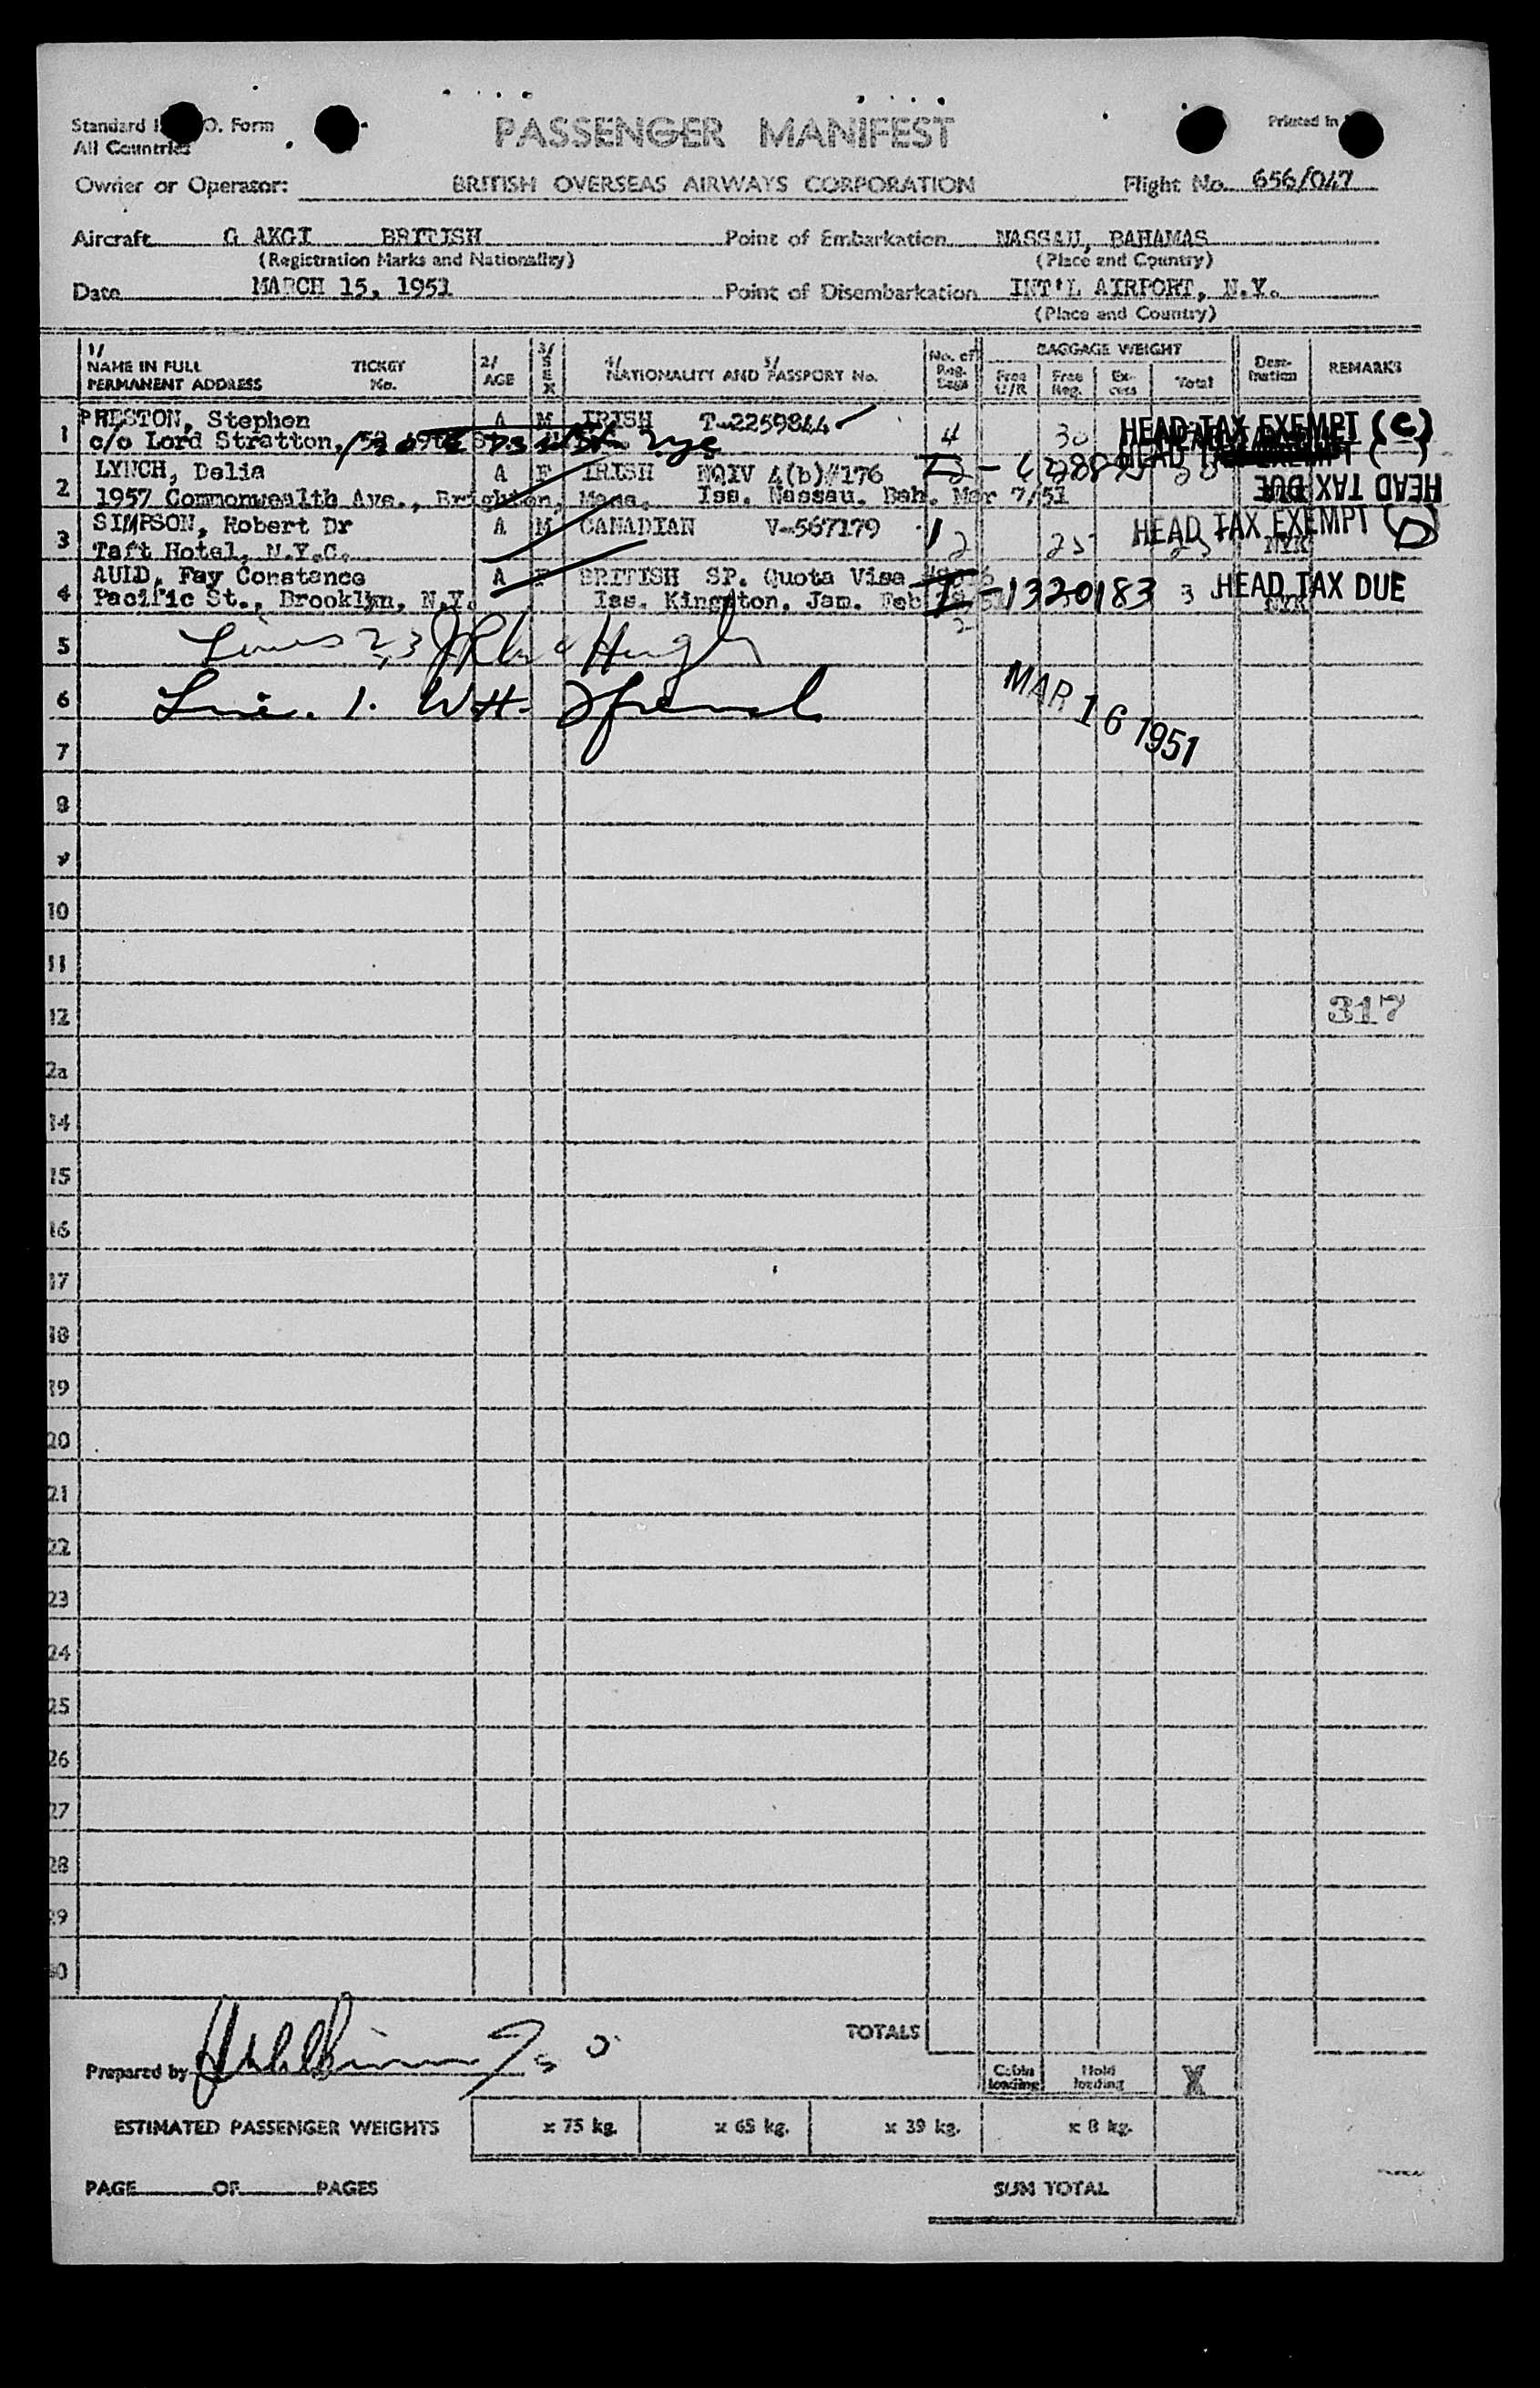 Standard I O. Form
All Countries
PASSENGER MANIFEST
Printed in
Owner or Operator: BRITISH OVERSEAS AIRWAYS CORPORATION Flight No. 656/047
Aircraft G AKGI BRITISH Point of Embarkation NASSAU, BAHAMAS
(Registration Marks and Nationality) (Place and Country)
Date MARCH 15, 1951 Point of Disembarkation INT'L AIRPORT, N.Y.
(Place and Country)
1/ NAME IN FULL PERMANENT ADDRESS TICKET No. 2/ AGE 3/ SEX 4/ NATIONALITY AND 5/ PASSPORT No. No. of Reg. Bags BAGGAGE WEIGHT Free U/R Free Reg. Ex-cess Total Dest-ination REMARKS
1 PRESTON, Stephen A M IRISH T-2259844 4 30 HEAD TAX EXEMPT (C)
c/o Lord Stratton, 130 E 73 nyc
HEAD TAX EXEMPT ( )
2 LYNCH, Delia A F IRISH NQIV 4(b)#176
1957 Commonwealth Ave., Brighton, Mass. Iss. Nassau. Bah. Mar 7/51 HEAD TAX DUE
3 SIMPSON, Robert Dr A M CANADIAN V-567179 1 2 25 HEAD TAX EXEMPT (D)
Taft Hotel, N.Y.C. NYK
4 AULD, Fay Constance A F BRITISH SP. Quota Visa
Pacific St., Brooklyn, N.Y. Iss. Kingston, Jam. Feb I-1320183 3 HEAD TAX DUE
NYK
5 Lines 2,3
6 Line. 1. W.H.
MAR 16 1951
7
8
9
10
11
12 317
2a
14
15
16
17
18
19
20
21
22
23
24
25
26
27
28
29
30
TOTALS
Prepared by
Cabin loading Hold loading X
ESTIMATED PASSENGER WEIGHTS x 75 kg. x 65 kg. x 39 kg. x 8 kg.
PAGE OF PAGES SUM TOTAL